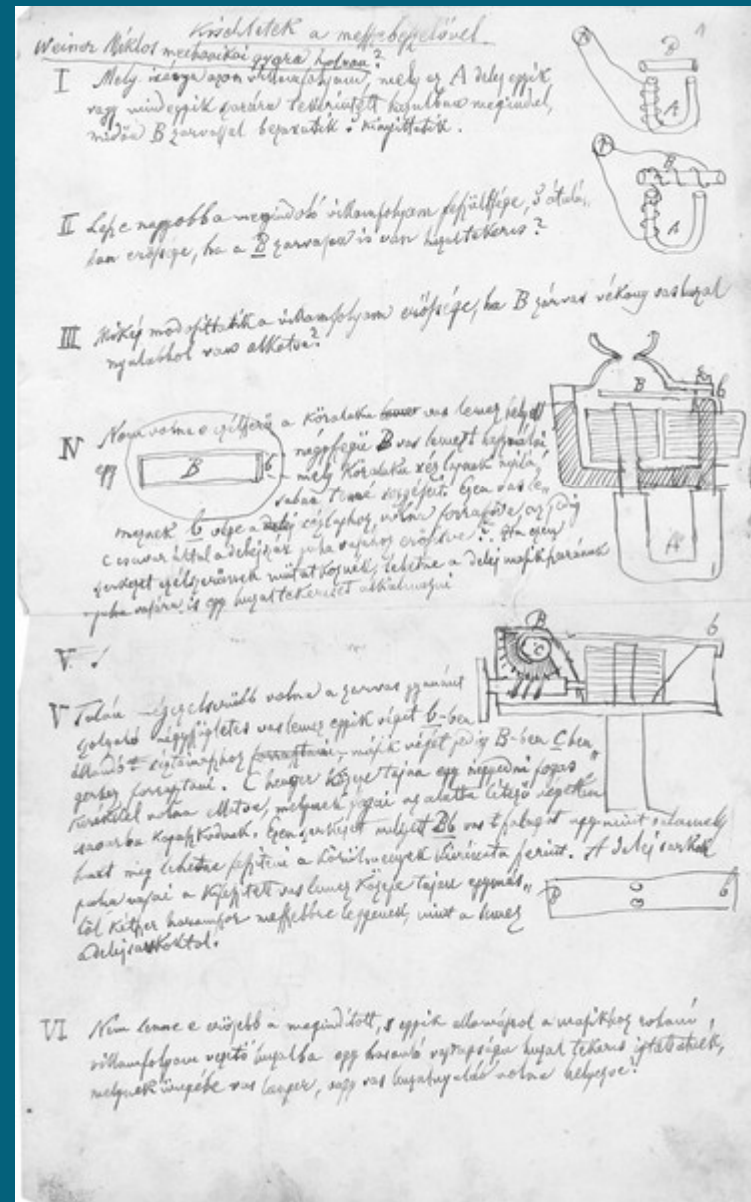 Kisérletek a messzebeszélővel.
Weiner Miklos mechanikai gyára holvan?
1
I Mely iránya azon villamfolyam, mely az A delej egyik
vagy mindegyik szarára tekerintett huzalban megindul,
midőn B zárvassal bezaratik s kinyittatik.
B
A
II Lesz e nagyobb a meginduló villamfolyam feszültsége, s általá-
ban erőssége, ha a B zarvason is van huzaltekercs?
B
A
III Mikép modosittatik a villamfolyam erőssége, ha B zárvas vékony vashuzal
nyalábból van alkotva?
IV Nem volna e czélszerű a köralaku vas lemez helyett
egy négyszegü B vas lemezt használni
mely köralaku rézlapnak nyilá-
sában tenné rezgéseit. Ezen vasle-
meznek b vége a rézlaphoz volna forrasztva, az pedig
c csavar által a delejszár puha vasához erősítve? Ha ezen
szerkezet czélszerünek mutatkoznék, lehetne a delej masik szarának
puha vasára is egy huzaltekercset alkalmazni
B b
B b
A
V
V Talán egyszerübb volna a zarvas gyanánt
szolgáló négyszögletes vaslemez egyik végét b-ben
állandó réztámaszhoz, másik végét pedig B-ben C hen-
gerhez forrasztani. C henger közepe tajna egy negyedni fogas
kerékkel volna ellátva, melynek fogai az alatta létező végetlen
csavarba kapaszkodnak. Ezen szerkezet mellett Bb vas szalagot ugymint valamely
hurt meg lehetne feszíteni a körülmények kivánata szerint. A delej sarkok
puha vasai a kifeszített vaslemez közepe tajan egymás-
tól kétszer háromszor messzebbre legyenek, mint a lemez
a delejsarkoktol.
B C b
B b
VI Nem lenne e erősebb a megindított, s egyik állomásról a masikhoz rohanó
villamfolyam vezető huzalba egy hasonló vastagságu huzal tekercs igtattatnék,
melynek üregébe vas henger, vagy vas huzalnyaláb volna helyezve?